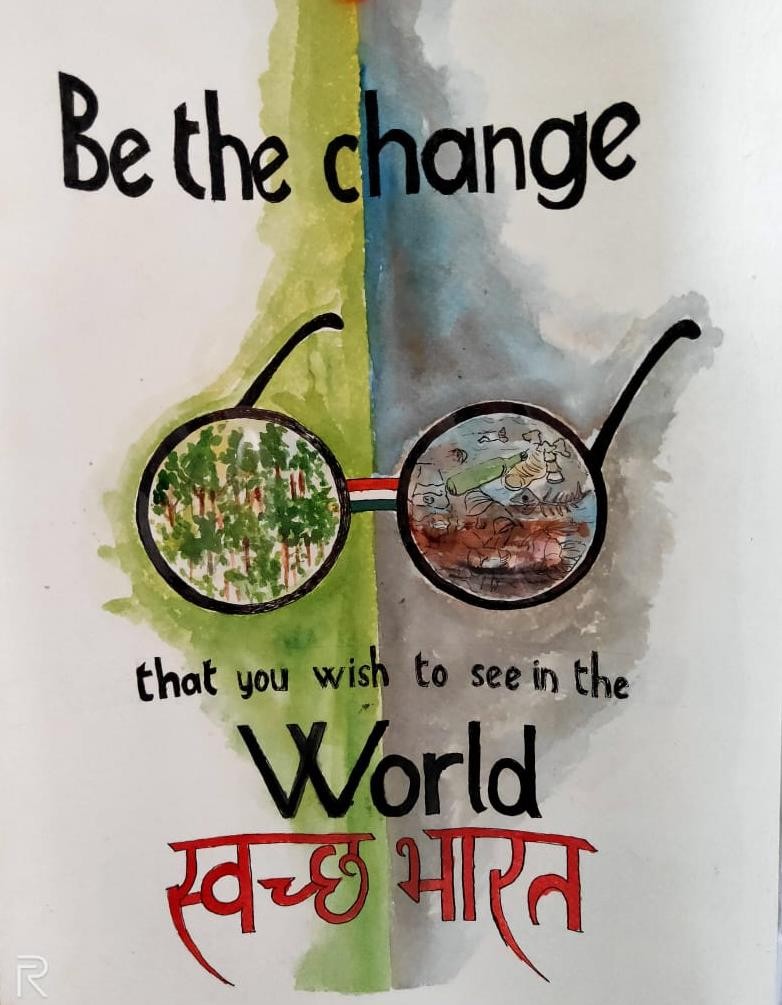 Be the change
that you wish to see in the
World
स्वच्छ भारत
R